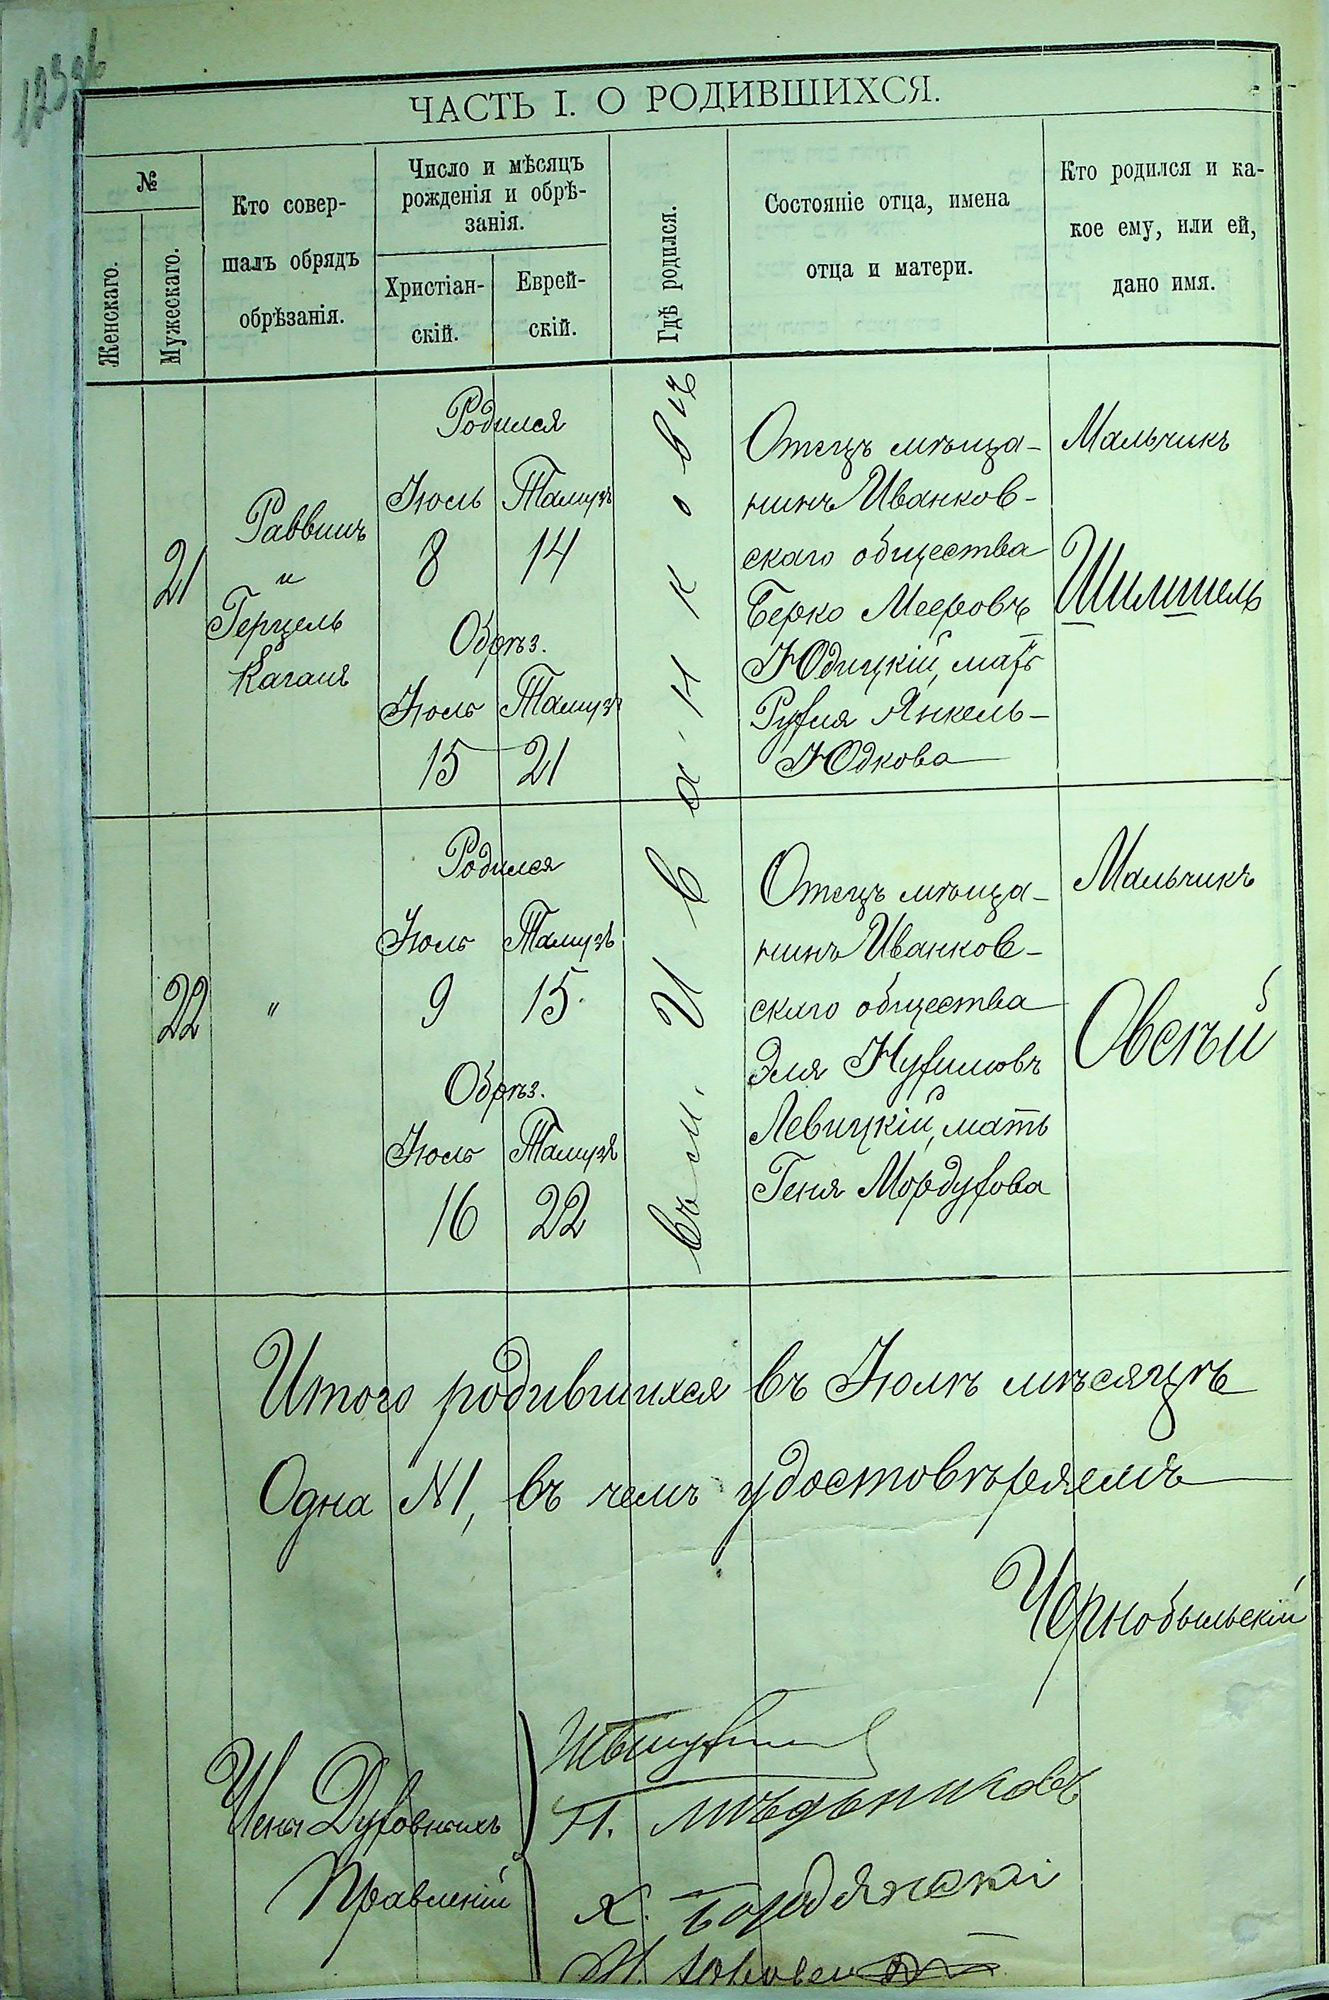 ЧАСТЬ I. О РОДИВШИХСЯ.
№
Женскаго.
Мужескаго.
Кто совер-
шалъ обрядъ
обрѣзанія.
Число и мѣсяцъ
рожденія и обрѣ-
занія.
Христіан-
скій.
Еврей-
скій.
Гдѣ родился.
Состояніе отца, имена
отца и матери.
Кто родился и ка-
кое ему, или ей,
дано имя.
21
Раввинъ
и
Герцель
Каганъ
Родился
Іюль Тамузъ
8 14
Обрѣз.
Іюль Тамузъ
15 21
въ м. Иванковѣ
Отецъ мѣща-
нинъ Иванков-
скаго общества
Берко Мееровъ
Юдицкій, мать
Рухля Янкель-
Юдкова
Мальчикъ
Шилшель
22
"
Родился
Іюль Тамузъ
9 15
Обрѣз.
Іюль Тамузъ
16 22
Отецъ мѣща-
нинъ Иванков-
скаго общества
Эля Нухимовъ
Левицкій, мать
Геня Мордухова
Мальчикъ
Овсѣй
Итого родившихся въ Іюлѣ мѣсяцѣ
Одна №1, въ чемъ удостовѣряемъ
Чернобыльскій
Члены Духовныхъ
Правленій
П. Мѣдниковъ
Х. Бородянскі